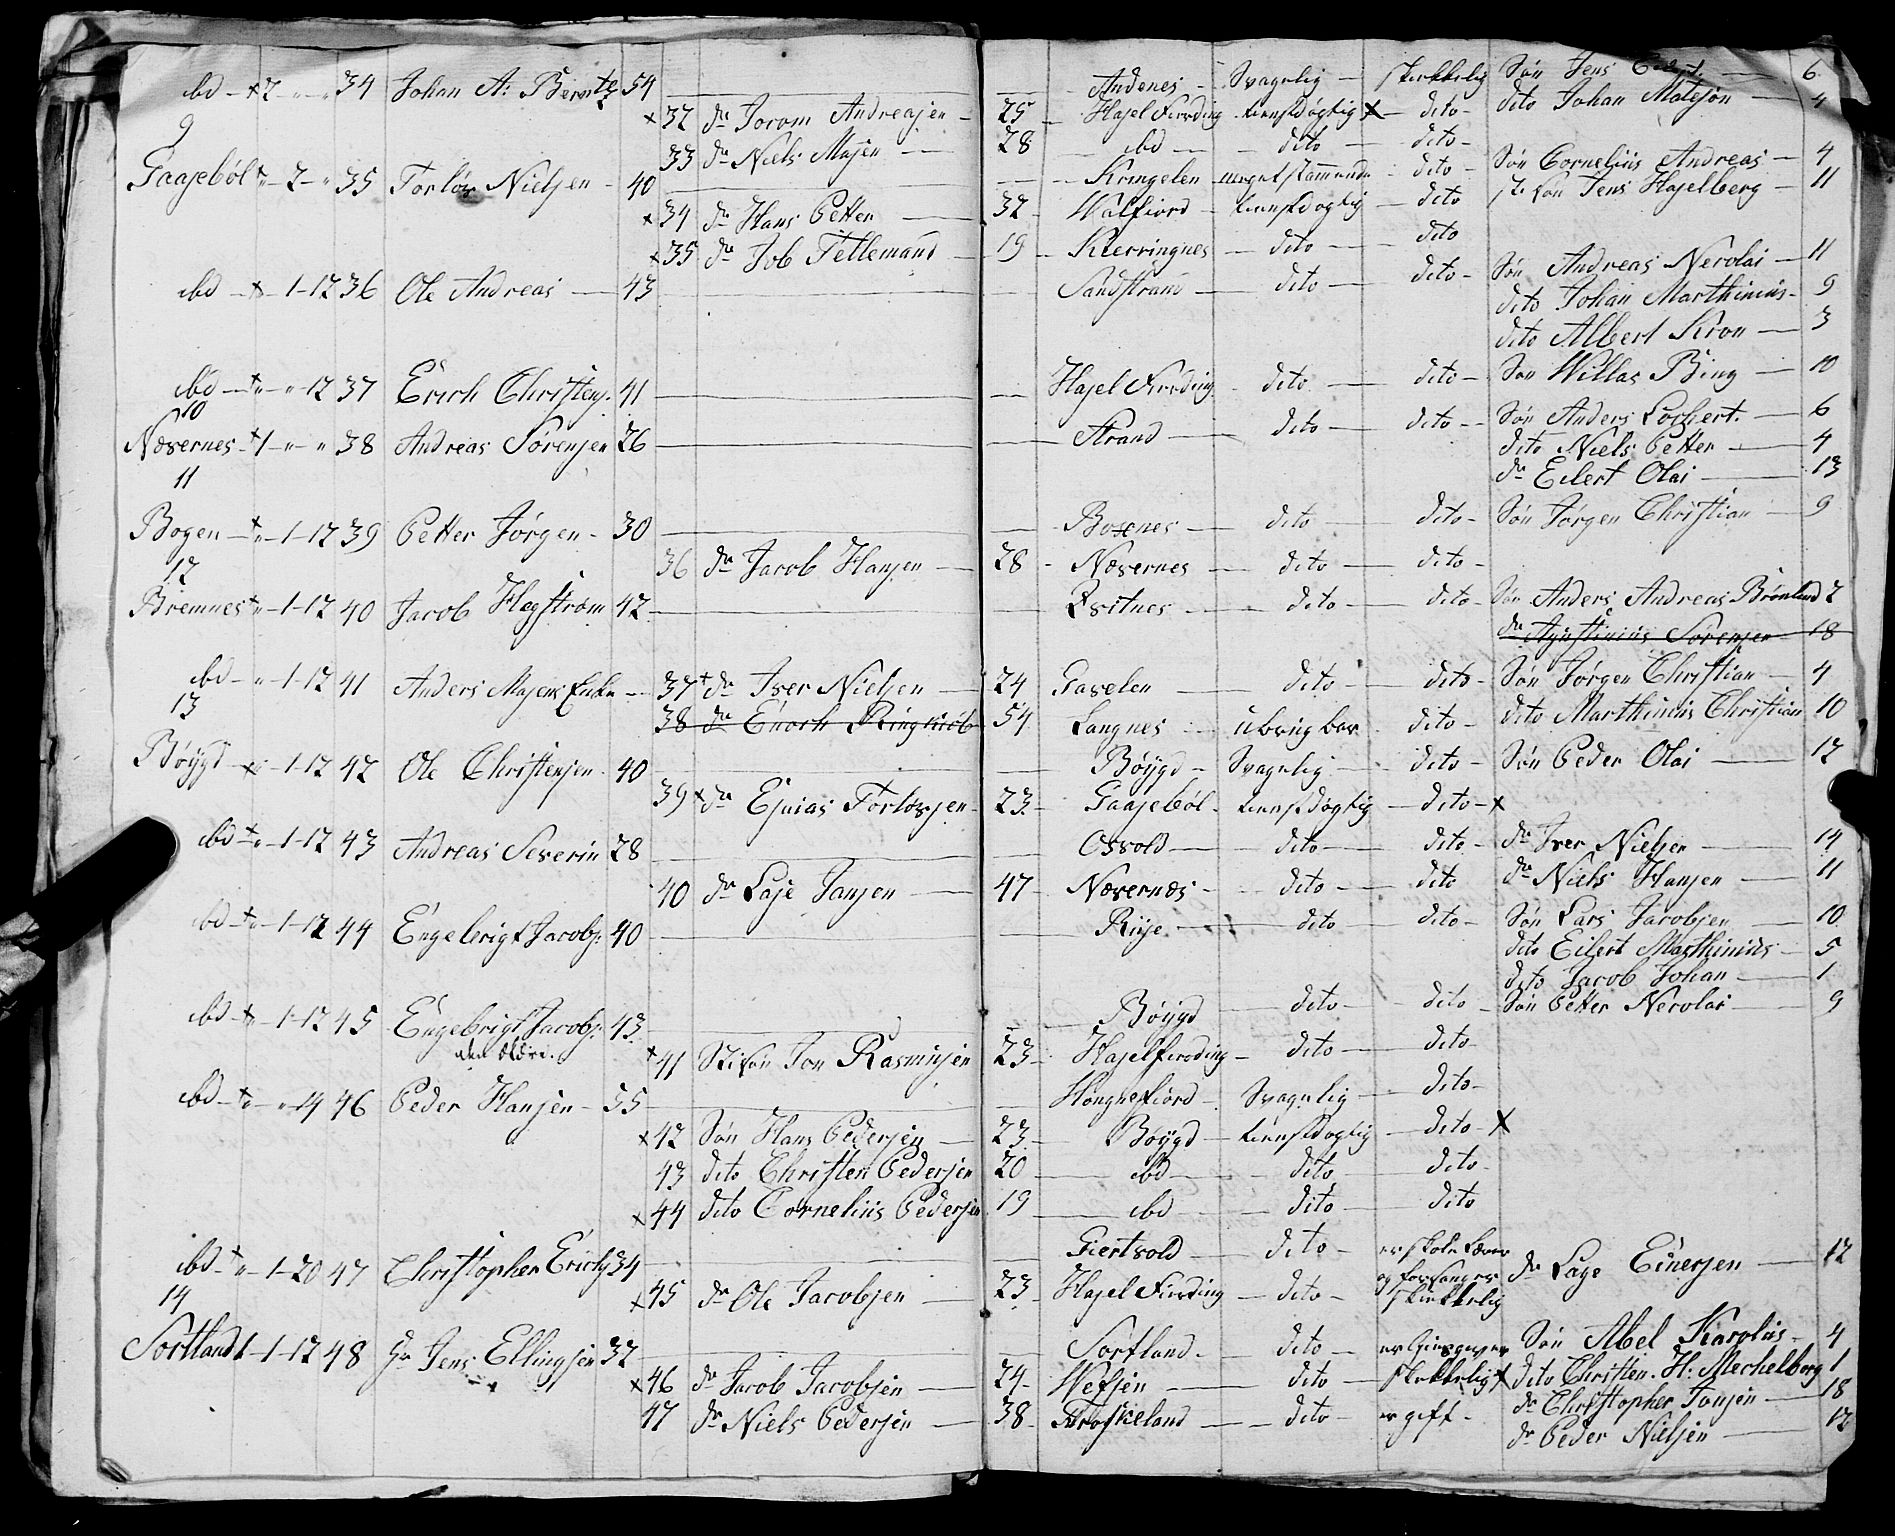 ibd - + 2 - " - " 34 Johan A: Berntz 54 — Andenes - Svagelig - skikkelig Søn Jens — 6
9 x 32 dr Joram Andreasen - 25 - Hasel Fiording tienstdygtig x - dito - dito Johan Matesøn — 4
33 dr Niels Masen - - 28 - ibd - - dito - dito -
Gaasebøl + " - 2 - " 35 Torløv Nielsen - 40 — Kringelen - dito - Søn Cornelius Andreas - 4
x 34 dr Hans Petter — 32 - Walfiord - tienstdygtig - dito st: Søn Jens Haselberg - 11
x 35 dr Job Fellemand - 19 - Kierringnes - dito - dito
ibd - x - 1 - 12 36 Ole Andreas — 43 — Sandstrand - dito - dito - Søn Andreas Nerolai - 11
dito Johan Marthinius - 9
dito Albert Kron - 3
ibd - + " - " - 12 37 Erich Christens. 41 — Hasel Fiording - dito - dito - Søn Willas Bing - 10
10
Næsernes - + 1 - " - " 38 Andreas Sørensen 26 — Strand — dito - dito - Søn Anders Lochert. - 6
dito Niels Petter - 4
11 dr Eilert Olai — 13
Bogen - + " - 1 - 12 39 Petter Jørgen - 30 — Boxnes - dito - dito - Søn Jørgen Christian - 9
12 36 dr Jacob Hansen - 28 - Næsernes - dito - dito -
Bremnes + " - 1 - 12 40 Jacob Hegstrøm 42 — Qvitnes - dito - dito - Søn Anders Andreas Brønlund 2
dr Agustinius Sørensen - 18
ibd - " - 1 - 12 41 Anders Masens Enke - 37 + dr Iver Nielsen - 24 Gavelen — dito - dito - Søn Jørgen Christian - 4
13 38 dr Enoch Ringkiøb 54 Langnes - ubrugbar - dito - dito Marthinius Christian 10
Bøygd - x " - 1 - 12 42 Ole Christensen - 40 — Bøygd - Svagelig - dito - Søn Peder Olai — 12
39 x dr Esaias Torløvsen - 23 - Gaasebøl - tienstdygtig - dito - x
ibd + " - 1 - 12 43 Andreas Severin 28 — Osvold - dito - dito - dr Iver Nielsen — 14
40 dr Laje Jansen — 47 - Næsernæs - dito - dito dr Niels Hansen - 11
ibd - + - 1 - 12 44 Engebrigt Jacobs: 40 — Riise - dito - dito - Søn Lars Jacobsen - 10
dito Eilert Marthinius - 5
dito Jacob Johan - 1
ibd - + - 1 - 12 45 Engebrigt Jacobs: 43 — Bøygd - dito - dito - Søn Petter Nerolai - 9
den ældre. + 41 Stifsøn Jon Rasmusen 23 - Haselfiording - dito - dito
ibd - + - " - 14 46 Peder Hansen - 55 — Hongnefiord - Svagelig - dito -
x 42 Søn Hans Pedersen - 23 - Bøygd - tienstdygtig - dito - x
43 dito Christen Pedersen 20 - ibd - dito - dito -
x 44 dito Cornelius Pedersen 19 - ibd - dito - dito
ibd - + " - 1 - 20 47 Christopher Erichs 34 — Giertvold - dito - er skole Lærer
og forsanger dr Lage Einersen — 12
14 x 45 dr Ole Jacobsen - 23 - Hasel Fiording - dito - skikkelig
Sortland 1 - 1 - 12 48 Hr Jens Ellingsen 32 — Sortland - dito - er Giesgiver Søn Abel Karolus - 4
x 46 dr Jacob Jacobsen - 24 - Wefsen — dito - skikkelig x dito Christen H: Mechelborg 1
47 dr Niels Pedersen - 38 - Froskeland - dito - er gift - dr Christopher Tonsen - 18
dr Peder Nielsen — 12